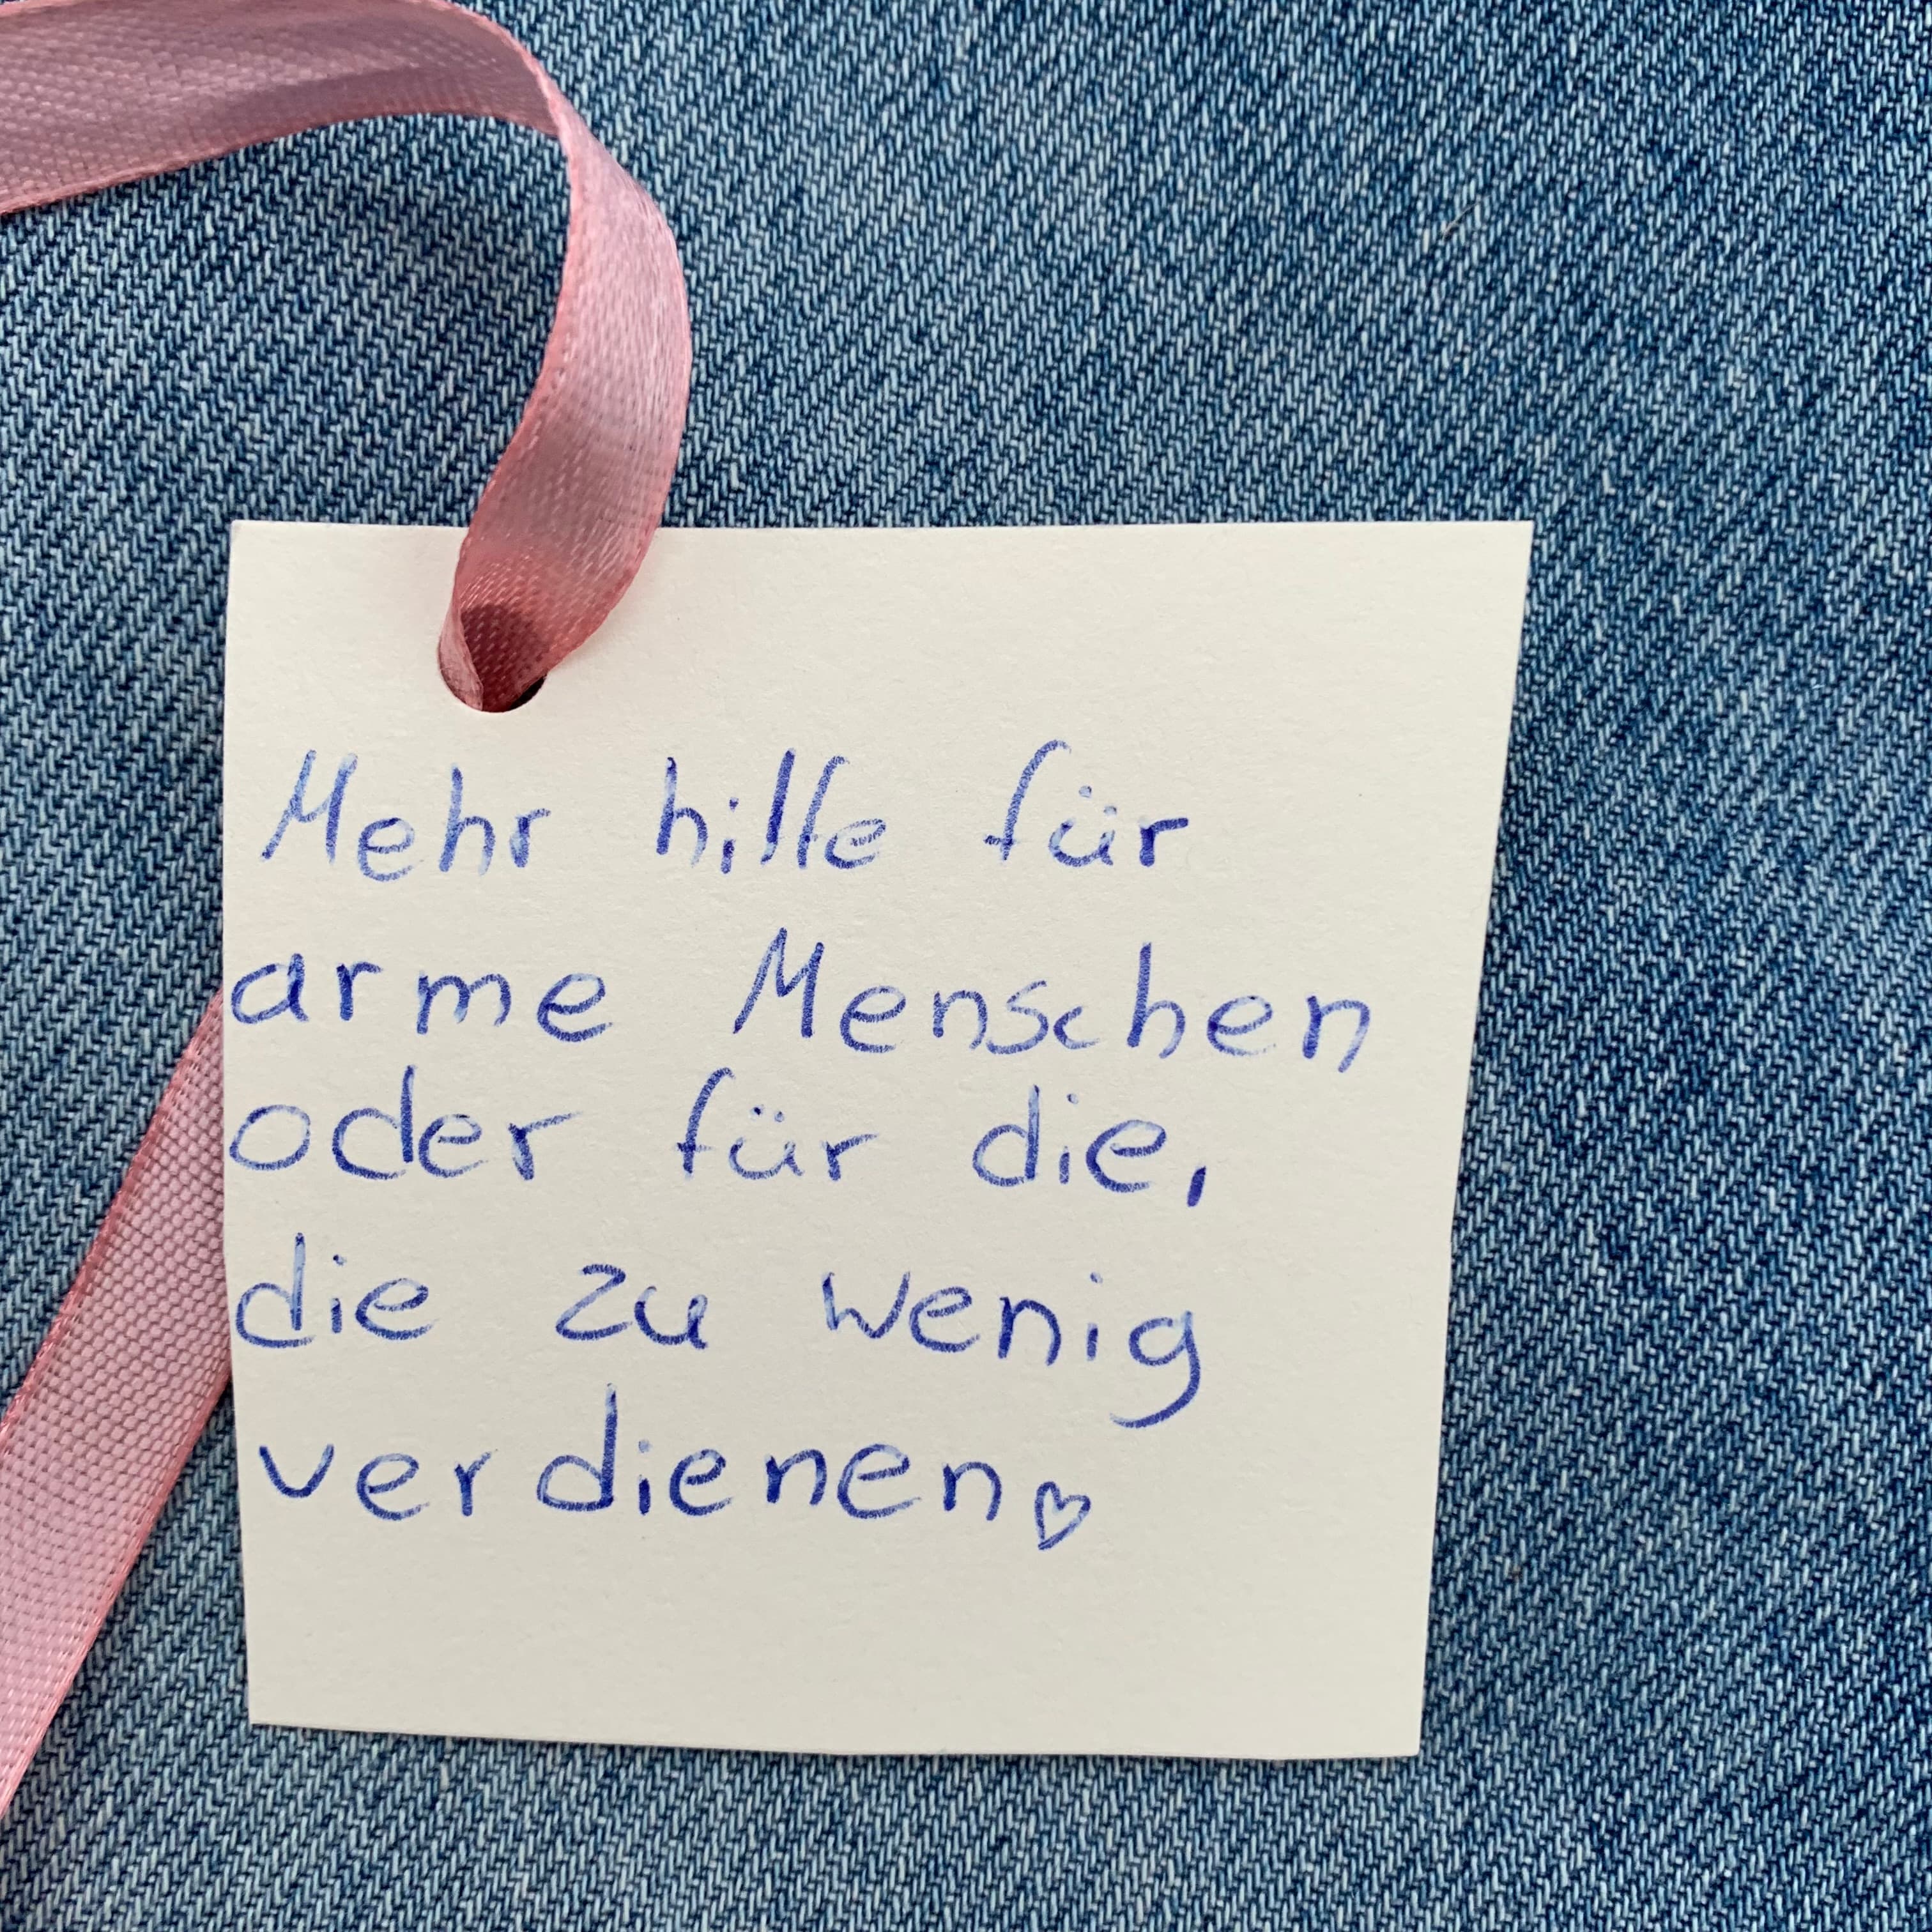 Mehr hilfe für
arme Menschen
oder für die,
die zu wenig
verdienen♡